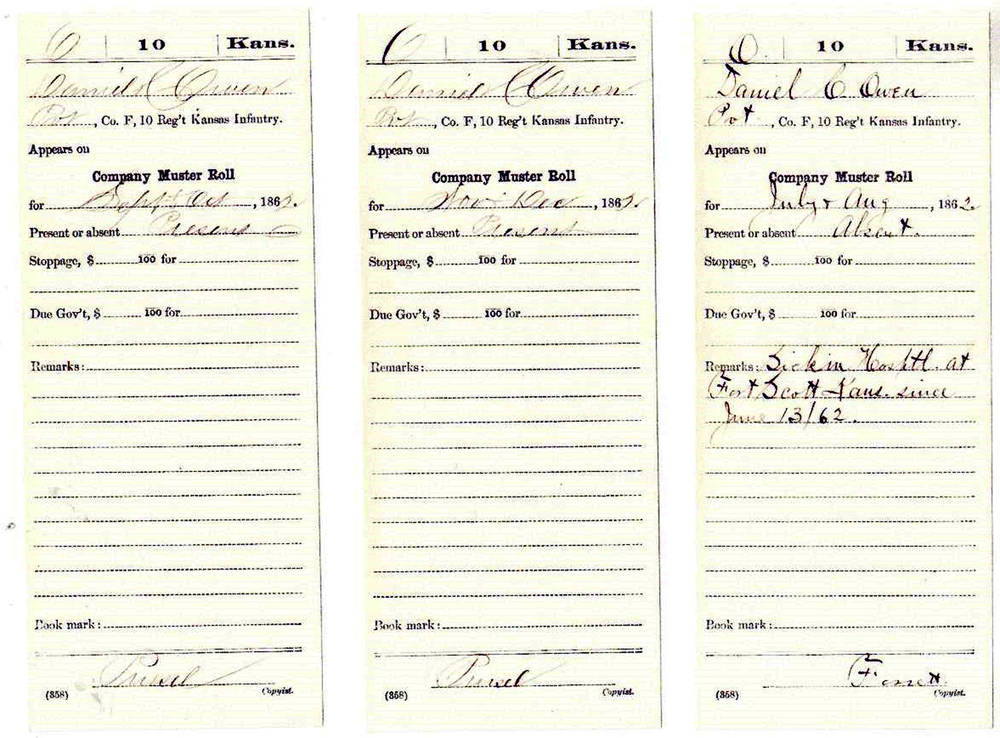 O | 10 | Kans.
Daniel C Owen
Pvt, Co. F, 10 Reg't Kansas Infantry.
Appears on
Company Muster Roll
for Sept & Oct, 1862.
Present or absent Present
Stoppage, $ 100 for
Due Gov't, $ 100 for
Remarks:
Book mark:
(358) Copyist.
O | 10 | Kans.
Daniel C Owen
Pvt, Co. F, 10 Reg't Kansas Infantry.
Appears on
Company Muster Roll
for Nov & Dec, 1862.
Present or absent Present
Stoppage, $ 100 for
Due Gov't, $ 100 for
Remarks:
Book mark:
(358) Copyist.
O. | 10 | Kans.
Daniel C. Owen
Pvt, Co. F, 10 Reg't Kansas Infantry.
Appears on
Company Muster Roll
for July & Aug, 1862.
Present or absent Absent.
Stoppage, $ 100 for
Due Gov't, $ 100 for
Remarks: Sick in Hosptl. at
Fort Scott Kans. since
June 13/62.
Book mark:
(358) Copyist.